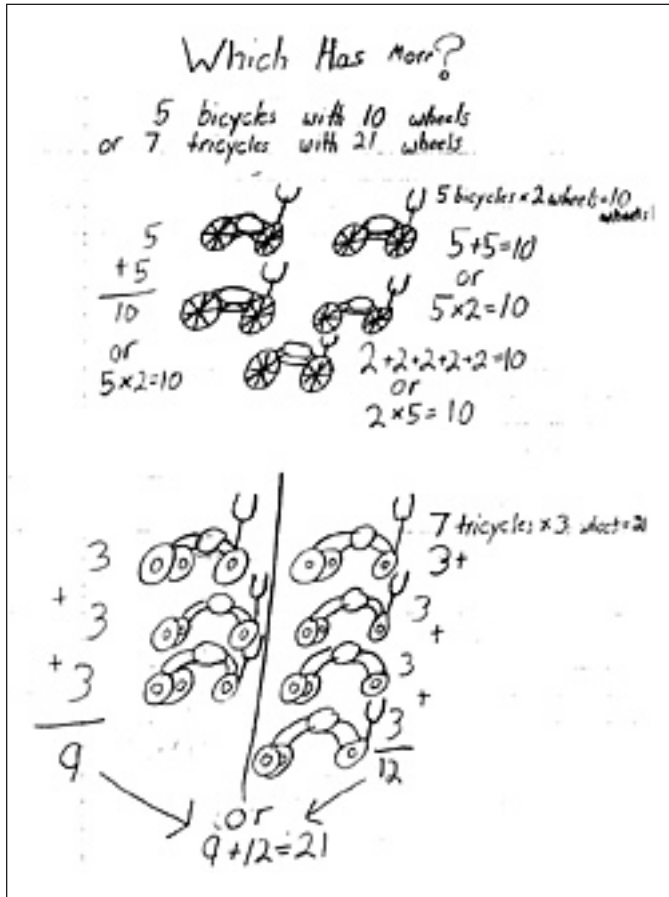 Which Has More?
5 bicycles with 10 wheels
or 7 tricycles with 21 wheels
5 bicycles × 2 wheels = 10
wheels!
5
+5
10
or
5×2=10
5+5=10
or
5×2=10
2+2+2+2+2=10
or
2×5=10
3
+
3
+
3
9
7 tricycles × 3 wheels=21
3+
3
+
3
+
3
12
or
9+12=21